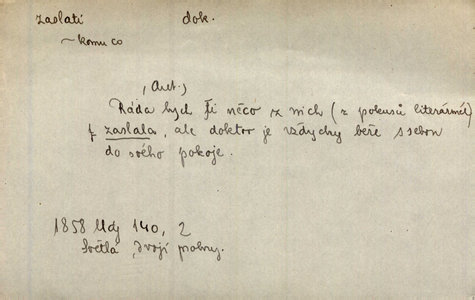 zaslati dok.
~ komu co
(Aut.)
Ráda bych Ti něco z nich (z pokusů literárních)
zaslala, ale doktor je vždycky béře s sebou
do svého pokoje.
1858 140, 2
Světlá, Dvojí probuz.